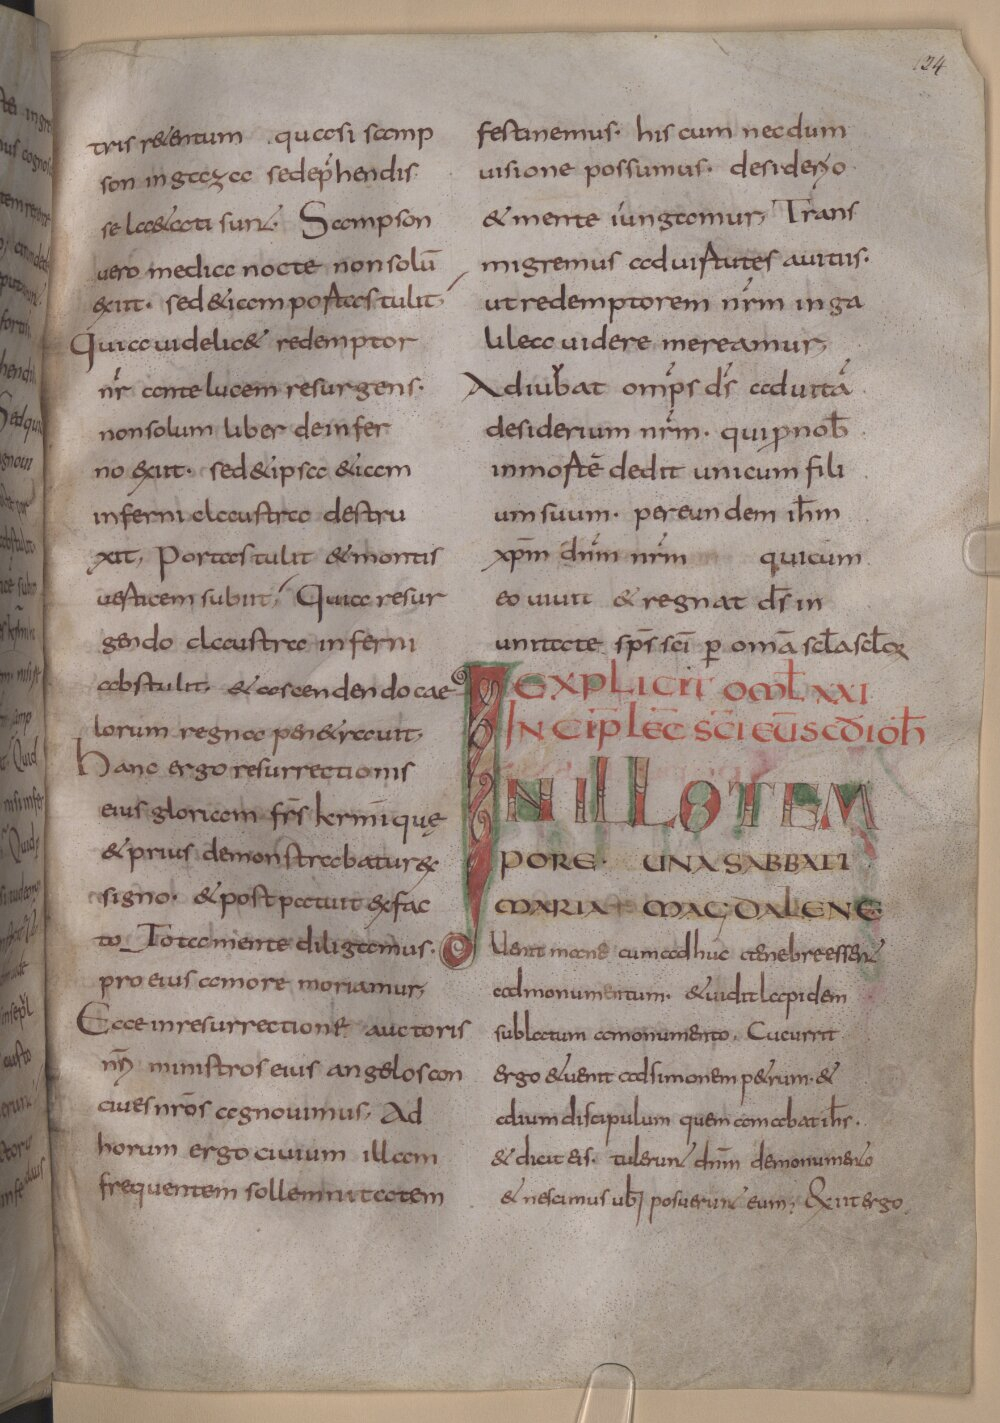 124
tris retentum quasi samp
son in gaza se dep̄hendis
se laetati sunt. Sampson
vero media nocte non solū
exiit. sed etiam portas tulit
Quia videlicet redemptor
nr̄ ante lucem resurgens.
non solum liber de infer
no exiit. sed et ipsa etiam
inferni claustra destru
xit, Portas tulit et montis
verticem subiit, Quia resur
gendo claustra inferni
abstulit, et ascendendo cae
lorum regna penetravit,
hanc ergo resurrectionis
eius gloriam fr̄s kr̄mi que
et prius demonstrabatur ex
signo. et post patuit ex fac
to, Tota mente diligamus.
pro eius amore moriamur,
Ecce in resurrectione auctoris
nr̄i ministros eius angelos con
cives nr̄os agnovimus, Ad
horum ergo civium illam
frequentem sollemnitatem
festinemus. his cum necdum
visione possumus. desiderio
& mente iungamur, Trans
migremus ad virtutes a vitiis.
ut redemptorem nr̄m in ga
lilea videre mereamur,
Adiuvat omp̄s ds̄ ad vitā
desiderium nr̄m. qui p nob̄
in mortē dedit unicum fili
um suum. per eundem ih̄m
xp̄m dn̄m nr̄m qui cum
eo vivit & regnat ds̄ in
unitate sp̄s sc̄i p omā scl̄a scl̄oꝝ
EXPLICIT OML̄ XXI
INCIP̄ LEC̄ SC̄I EUS̄ CD̄ IOH̄
IN ILLO TEM
PORE. UNA SABBATI
MARIA MAGDALENE
Venit mane cum adhuc tenebre essent
ad monumentum. & vidit lapidem
sublatum a monumento. Cucurrit
ergo & venit ad simonem petrum. &
alium discipulum quem amabat ih̄s.
& dicit eis. tulerunt dn̄m de monumento
& nescimus ubi posuerunt eum; Exiit ergo